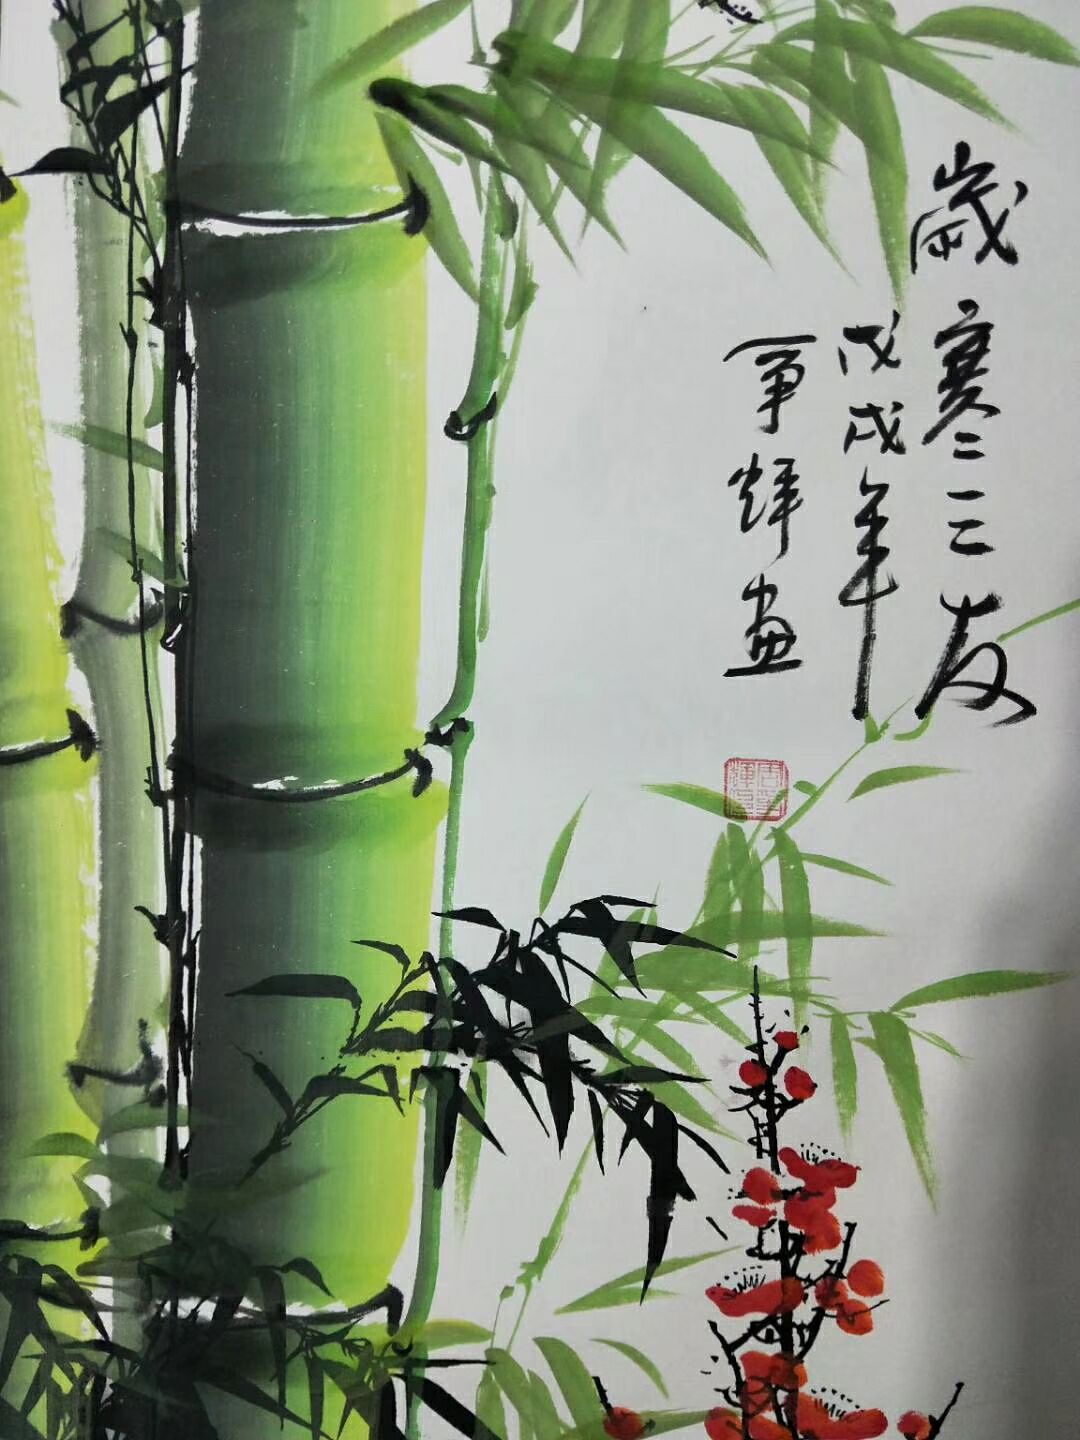 歲寒三友
戊戌年
争輝画